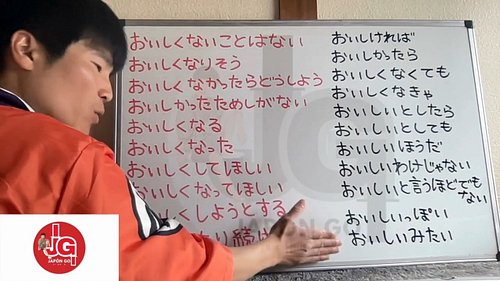 おいしくないことはない
おいしくなりそう
おいしくなかったらどうしよう
おいしかったためしがない
おいしくなる
おいしくなった
おいしくしてほしい
おいしくなってほしい
しくしようとする
おいしければ
おいしかったら
おいしくなくても
おいしくなきゃ
おいしいとしたら
おいしいとしても
おいしいほうだ
おいしいわけじゃない
おいしいと言うほどでも
ない
おいしいっぽい
おいしいみたい
JG
JAPÓN GO